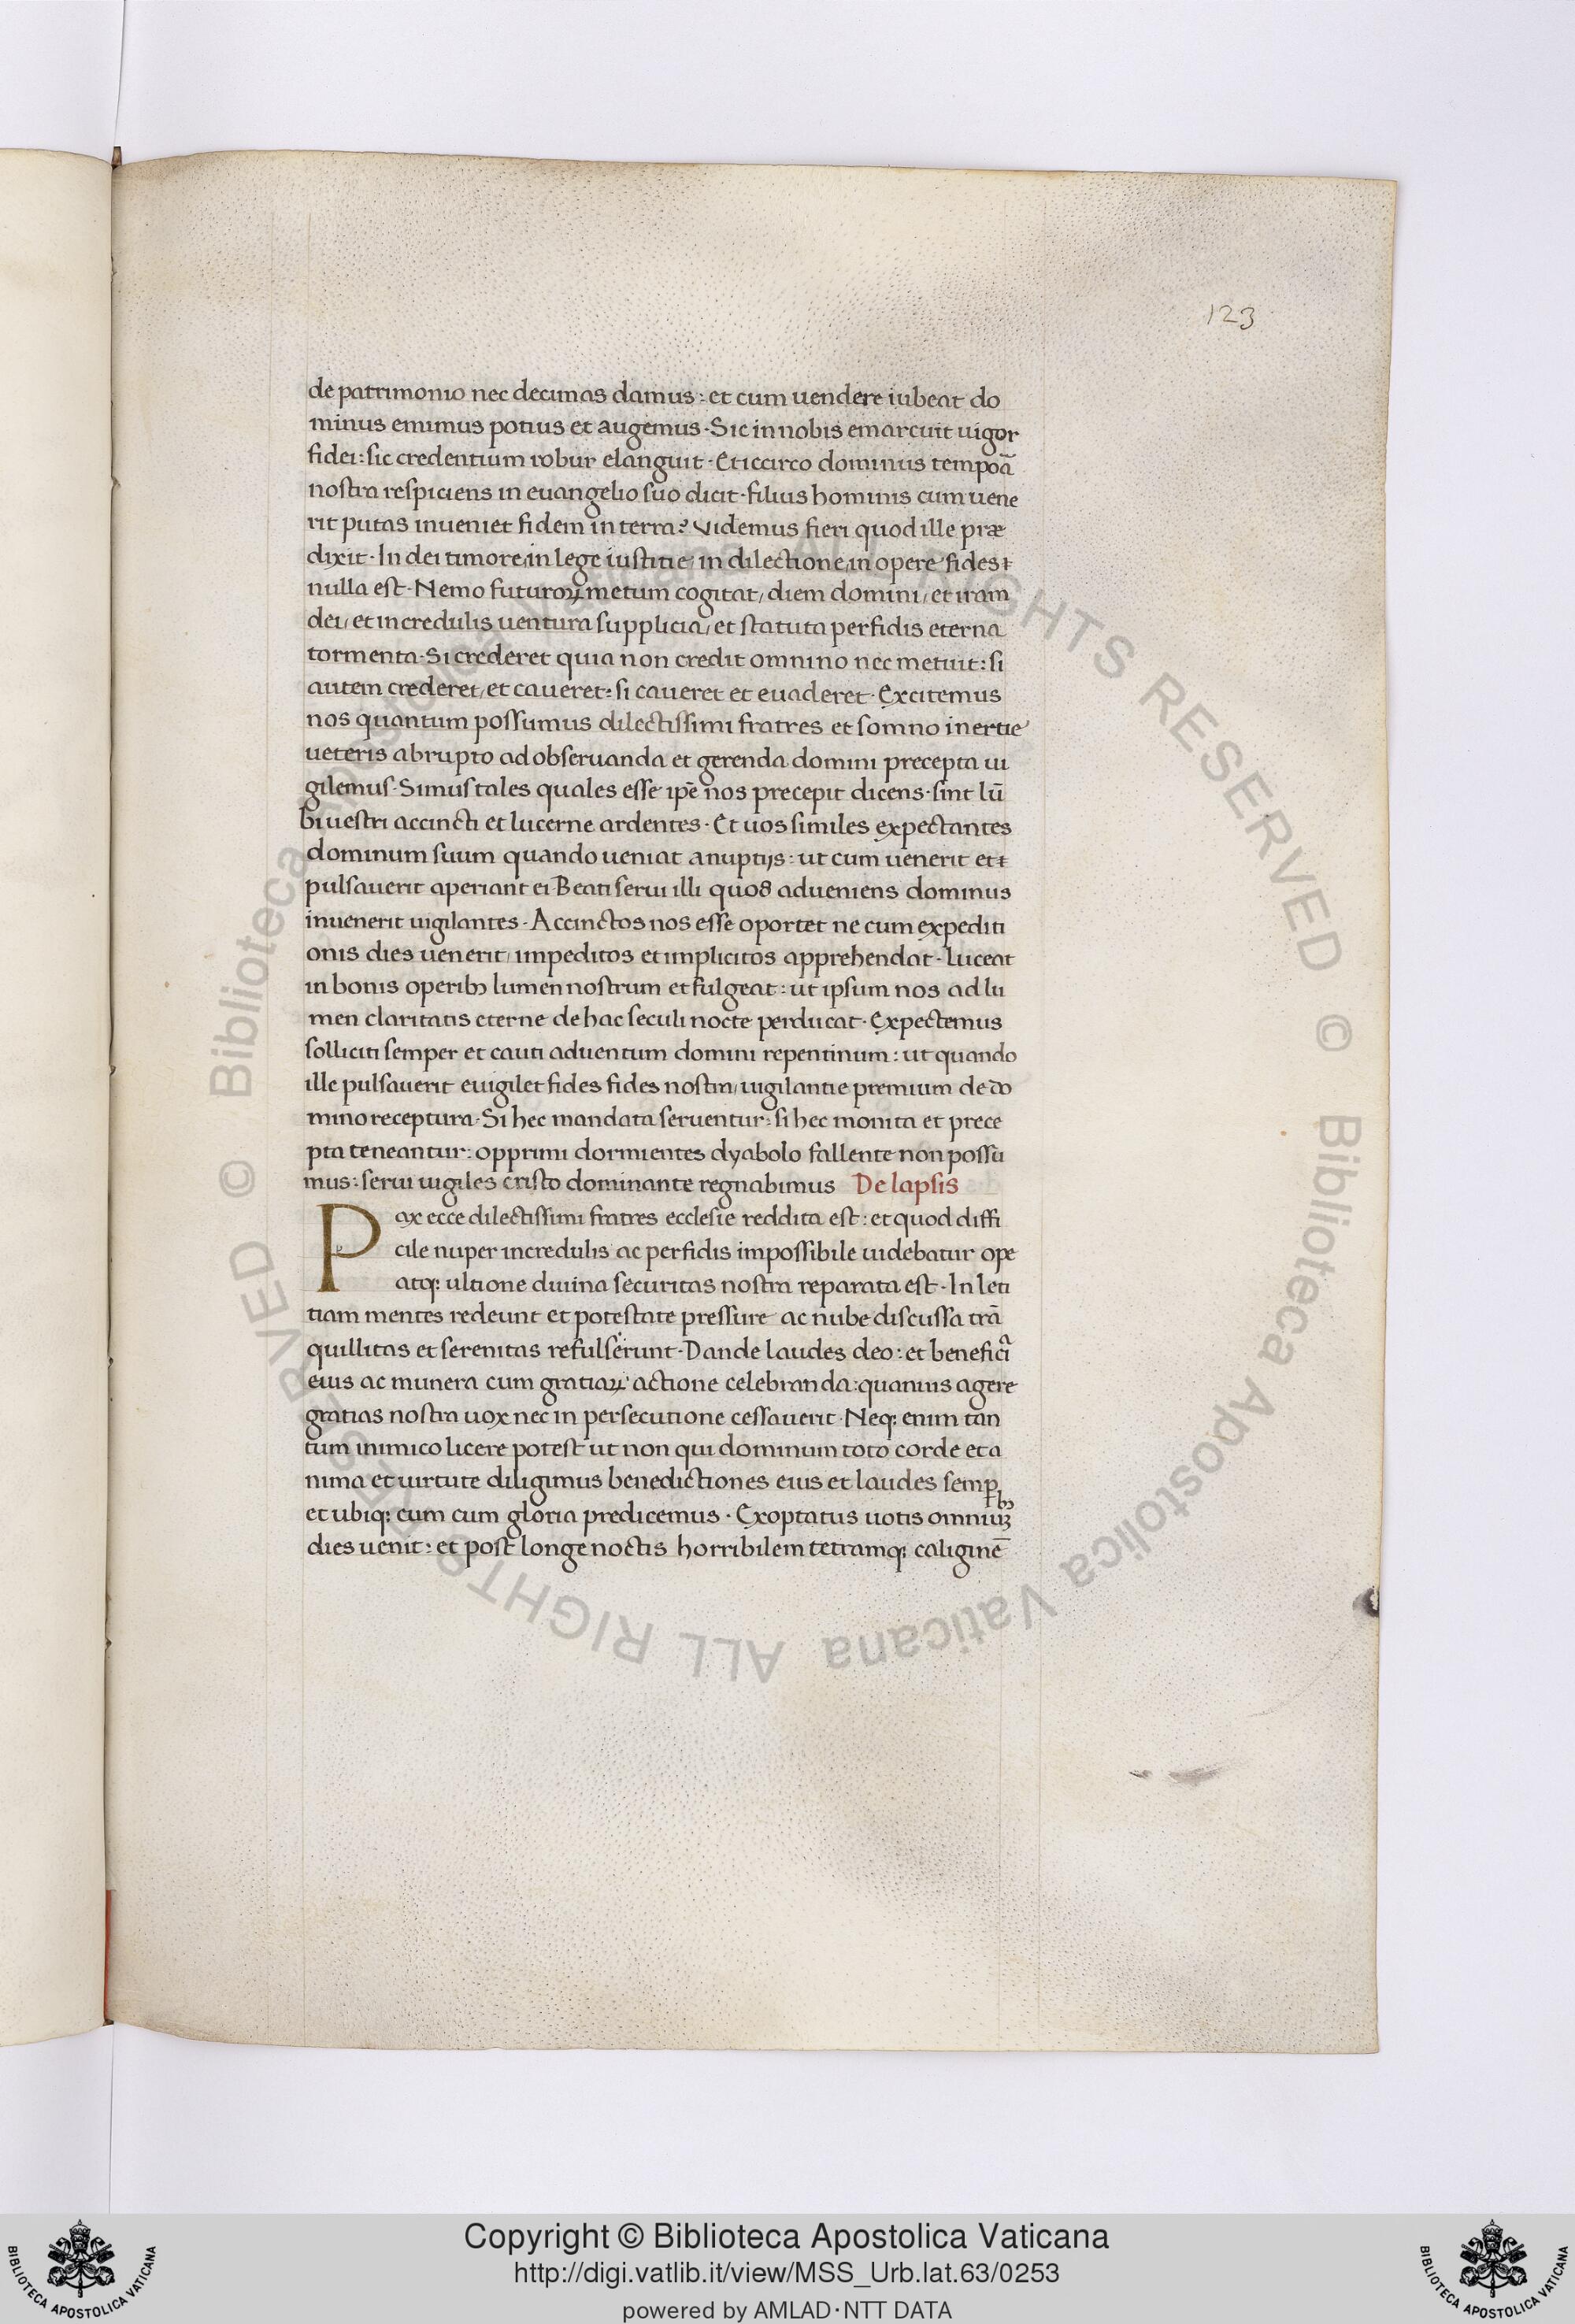 123
de patrimonio nec decimas damus : et cum uendere iubeat do
minus emimus potius et augemus · Sic in nobis emarcuit uigor
fidei : sic credentium robur elanguit · Et iccirco dominus tempoā
nostra respiciens in euangelio suo dicit · filius hominis cum uene
rit putas inueniet fidem in terra? Videmus fieri quod ille præ
dixit · In dei timore, in lege iustitie, in dilectione, in opere fides
nulla est · Nemo futuroꝝ metum cogitat, diem domini, et iram
dei, et incredulis uentura supplicia, et statuta perfidis eterna
tormenta · Si crederet quia non credit omnino nec metuit : si
autem crederet, et caueret : si caueret et euaderet · Excitemus
nos quantum possumus dilectissimi fratres et somno inertie
ueteris abrupto ad obseruanda et gerenda domini precepta ui
gilemus · Simus tales quales esse ip̄e nos precepit dicens · sint lū
bi uestri accincti et lucerne ardentes · Et uos similes expectantes
dominum suum quando ueniat a nuptijs : ut cum uenerit et
pulsauerit aperiant ei Beati serui illi quos adueniens dominus
inuenerit uigilantes · Accinctos nos esse oportet ne cum expediti
onis dies uenerit, impeditos et implicitos apprehendat · Luceat
in bonis operibꝫ lumen nostrum et fulgeat : ut ipsum nos ad lu
men claritatis eterne de hac seculi nocte perducat · Expectemus
solliciti semper et cauti aduentum domini repentinum : ut quando
ille pulsauerit euigilet fides fides nostra, uigilantie premium de do
mino receptura · Si hec mandata seruentur : si hec monita et prece
pta teneantur : opprimi dormientes dyabolo fallente non possu
mus : serui uigiles cristo dominante regnabimus De lapsis
Pax ecce dilectissimi fratres ecclesie reddita est : et quod diffi
cile nuper incredulis ac perfidis impossibile uidebatur ope
atqꝫ ultione diuina securitas nostra reparata est · In leti
tiam mentes redeunt et potestate pressure ac nube discussa trā
quillitas et serenitas refulserunt · Dande laudes deo : et beneficia
eius ac munera cum gratiaꝝ actione celebranda : quamuis agere
gratias nostra uox nec in persecutione cessauerit · Neqꝫ enim tan
tum inimico licere potest ut non qui dominum toto corde et a
nima et uirtute diligimus benedictiones eius et laudes semꝑ
et ubiqꝫ cum cum gloria predicemus · Exoptatus uotis omniuꝫ
dies uenit : et post longe noctis horribilem tetramqꝫ caliginē
© Biblioteca Apostolica Vaticana ALL RIGHTS RESERVED
© Biblioteca Apostolica Vaticana ALL RIGHTS RESERVED
Copyright © Biblioteca Apostolica Vaticana
http://digi.vatlib.it/view/MSS_Urb.lat.63/0253
powered by AMLAD·NTT DATA
BIBLIOTECA APOSTOLICA VATICANA
BIBLIOTECA APOSTOLICA VATICANA